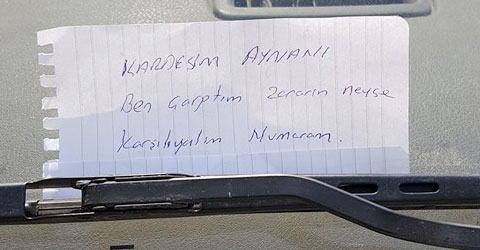 KARDEŞİM AYNANI
Ben Çarptım Zararın neyse
Karşılıyalım Numaram.